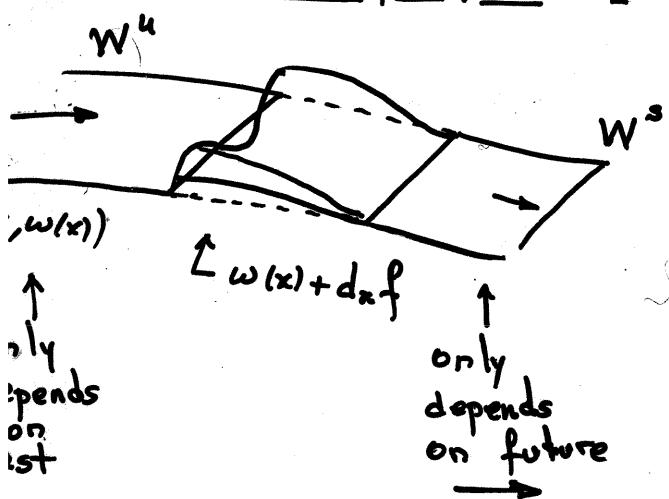 W^u
W^s
,ω(x))
ω(x)+dₓf
nly
epends
on
ast
only
depends
on future